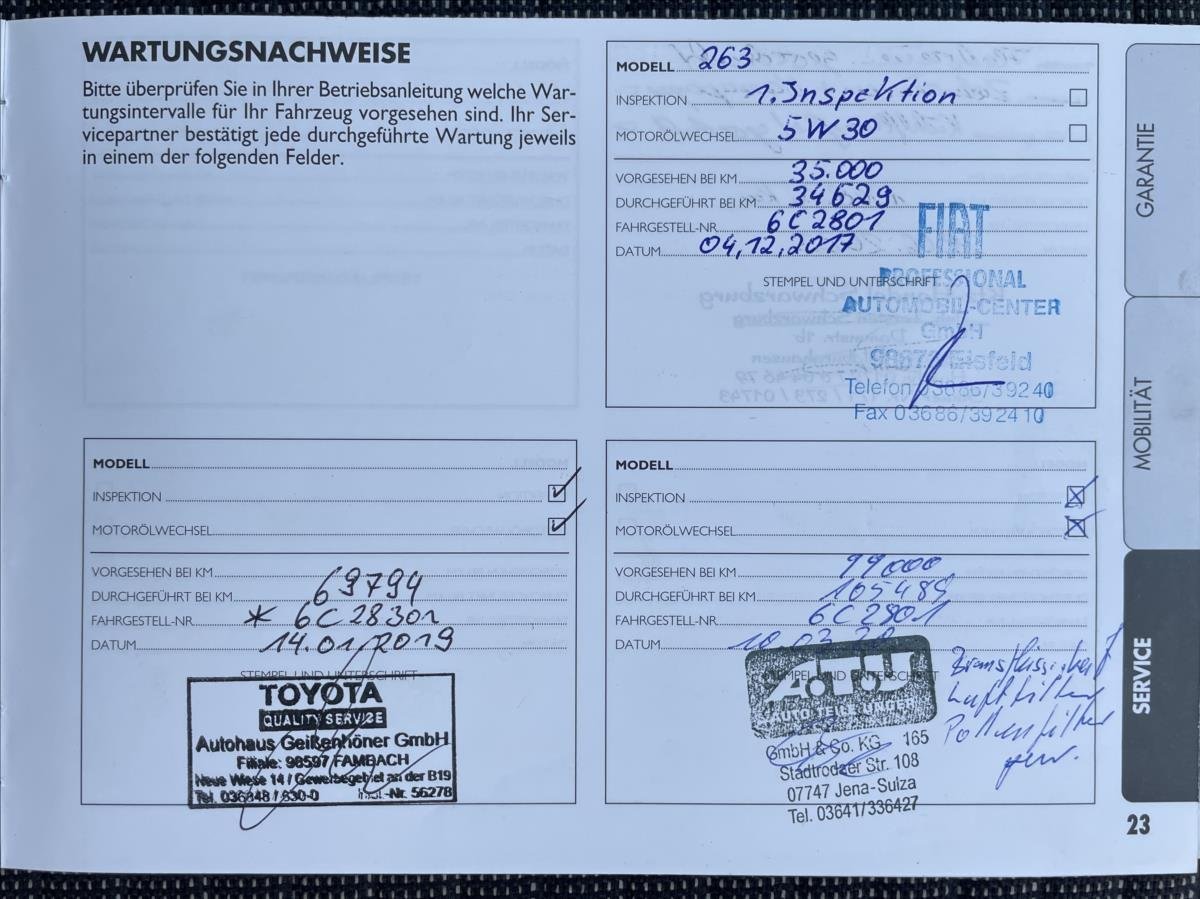 WARTUNGSNACHWEISE
Bitte überprüfen Sie in Ihrer Betriebsanleitung welche War-
tungsintervalle für Ihr Fahrzeug vorgesehen sind. Ihr Ser-
vicepartner bestätigt jede durchgeführte Wartung jeweils
in einem der folgenden Felder.
MODELL 263
INSPEKTION 1. Inspektion
MOTORÖLWECHSEL 5W30
VORGESEHEN BEI KM 35.000
DURCHGEFÜHRT BEI KM 34629
FAHRGESTELL-NR. 6C2801
DATUM 04,12,2017
STEMPEL UND UNTERSCHRIFT
FIAT
PROFESSIONAL
AUTOMOBIL-CENTER
GmbH
98673 Eisfeld
Telefon 03686/39240
Fax 03686/392410
MODELL
INSPEKTION
MOTORÖLWECHSEL
VORGESEHEN BEI KM
DURCHGEFÜHRT BEI KM 69794
FAHRGESTELL-NR. * 6C28301
DATUM 14.01/2019
STEMPEL UND UNTERSCHRIFT
TOYOTA
QUALITY SERVICE
Autohaus Geißenhöner GmbH
Filiale: 98597 FAMBACH
Neue Wiese 14 / Gewerbegebiet an der B19
Tel. 036848 / 830-0 Inst.-Nr. 56278
MODELL
INSPEKTION
MOTORÖLWECHSEL
VORGESEHEN BEI KM 99000
DURCHGEFÜHRT BEI KM 105489
FAHRGESTELL-NR. 6C2801
DATUM 10.03.20
STEMPEL UND UNTERSCHRIFT
A.T.U
AUTO-TEILE-UNGER
GmbH & Co. KG 165
Stadtrodaer Str. 108
07747 Jena-Sulza
Tel. 03641/336427
Bremsflüssigkeit
Luftfilter
Pollenfilter
gew.
GARANTIE
MOBILITÄT
SERVICE
23